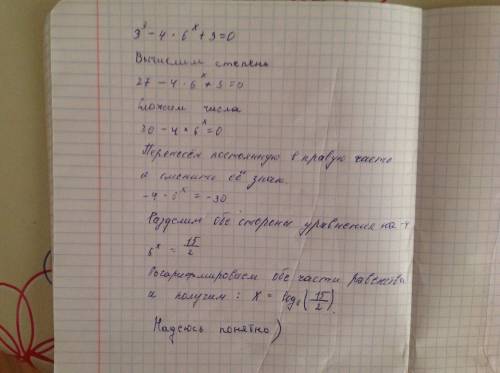 3³ - 4 · 6ˣ + 3 = 0
Вычислим степень
27 - 4 · 6ˣ + 3 = 0
Сложим числа
30 - 4 × 6ˣ = 0
Перенесём постоянную в правую часть
и сменим её знак.
-4 · 6ˣ = -30
Разделим обе стороны уравнения на -4
6ˣ = 15/2
Логарифмировием обе части равенства
и получим: X = log₆(15/2).
Надеюсь понятно)